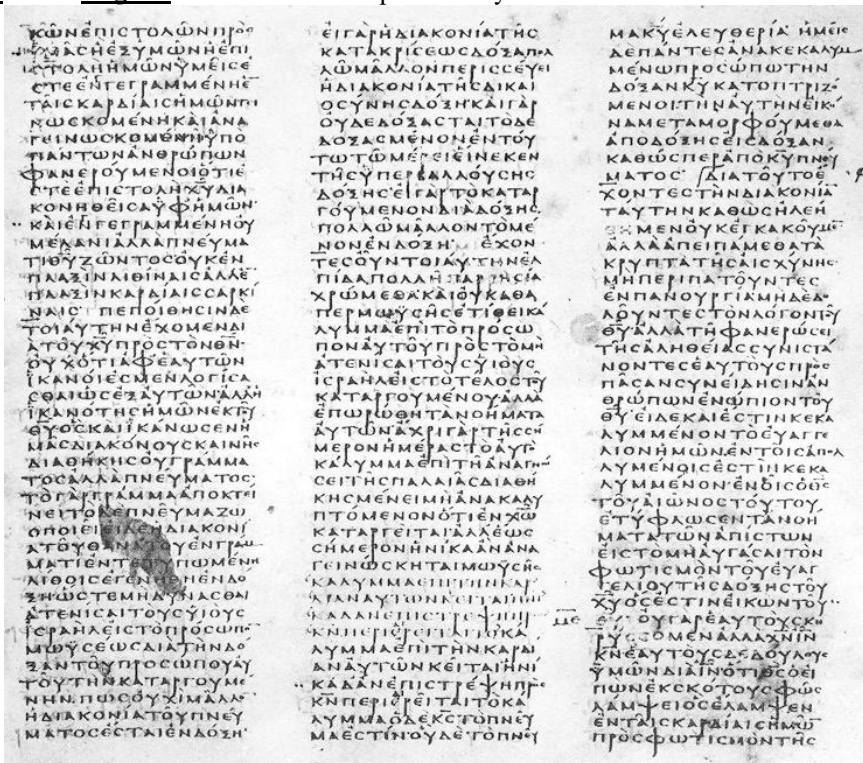 ΚΩΝΕΠΙϹΤΟΛΩΝΠΡΟϹ
ΥΜΑϹΗΕΞΥΜΩΝΗΕΠΙ
ϹΤΟΛΗΗΜΩΝΥΜΕΙϹΕ
ϹΤΕΕΝΓΕΓΡΑΜΜΕΝΗΕ
ΤΑΙϹΚΑΡΔΙΑΙϹΗΜΩΝΓΙ
ΝΩϹΚΟΜΕΝΗΚΑΙΑΝΑ
ΓΕΙΝΩϹΚΟΜΕΝΗΥΠΟ
ΠΑΝΤΩΝΑΝΘΡΩΠΩΝ
ΦΑΝΕΡΟΥΜΕΝΟΙΟΤΙΕ
ϹΤΕΕΠΙϹΤΟΛΗΧΥΔΙΑ
ΚΟΝΗΘΕΙϹΑΥΦΗΜΩΝ
ΚΑΙΕΝΓΕΓΡΑΜΜΕΝΗΟΥ
ΜΕΛΑΝΙΑΛΛΑΠΝΕΥΜΑ
ΤΙΘΥΖΩΝΤΟϹΟΥΚΕΝ
ΠΛΑΞΙΝΛΙΘΙΝΑΙϹΑΛΛΕ
ΠΛΑΞΙΝΚΑΡΔΙΑΙϹϹΑΡΚΙ
ΝΑΙϹ ΠΕΠΟΙΘΗϹΙΝΔΕ
ΤΟΙΑΥΤΗΝΕΧΟΜΕΝΔΙ
ΑΤΟΥΧΥΠΡΟϹΤΟΝΘΝ
ΟΥΧΟΤΙΑΦΕΑΥΤΩΝ
ΙΚΑΝΟΙΕϹΜΕΝΛΟΓΙϹΑ
ϹΘΑΙΩϹΕΞΑΥΤΩΝΑΛΛΗ
ΙΚΑΝΟΤΗϹΗΜΩΝΕΚΤΟΥ
ΘΥΟϹΚΑΙΙΚΑΝΩϹΕΝΗ
ΜΑϹΔΙΑΚΟΝΟΥϹΚΑΙΝΗϹ
ΔΙΑΘΗΚΗϹΟΥΓΡΑΜΜΑ
ΤΟϹΑΛΛΑΠΝΕΥΜΑΤΟϹ
ΤΟΓΑΡΓΡΑΜΜΑΑΠΟΚΤΕΙ
ΝΕΙΤΟΔΕΠΝΕΥΜΑΖΩ
ΟΠΟΙΕΙΕΙΔΕΗΔΙΑΚΟΝΙ
ΑΤΟΥΘΑΝΑΤΟΥΕΝΓΡΑΜ
ΜΑΤΙΕΝΤΕΤΥΠΩΜΕΝΗ
ΛΙΘΟΙϹΕΓΕΝΗΘΗΕΝΔΟ
ΞΗΩϹΤΕΜΗΔΥΝΑϹΘΑΙ
ΑΤΕΝΙϹΑΙΤΟΥϹΥΙΟΥϹ
ΙϹΡΑΗΛΕΙϹΤΟΠΡΟϹΩΠΟΝ
ΜΩΥϹΕΩϹΔΙΑΤΗΝΔΟ
ΞΑΝΤΟΥΠΡΟϹΩΠΟΥΑΥ
ΤΟΥΤΗΝΚΑΤΑΡΓΟΥΜΕ
ΝΗΝ ΠΩϹΟΥΧΙΜΑΛΛΟ
ΗΔΙΑΚΟΝΙΑΤΟΥΠΝΕΥ
ΜΑΤΟϹΕϹΤΑΙΕΝΔΟΞΗ
ΕΙΓΑΡΗΔΙΑΚΟΝΙΑΤΗϹ
ΚΑΤΑΚΡΙϹΕΩϹΔΟΞΑΠΟΛ
ΛΩΜΑΛΛΟΝΠΕΡΙϹϹΕΥΕΙ
ΗΔΙΑΚΟΝΙΑΤΗϹΔΙΚΑΙ
ΟϹΥΝΗϹΔΟΞΗΚΑΙΓΑΡ
ΟΥΔΕΔΟΞΑϹΤΑΙΤΟΔΕ
ΔΟΞΑϹΜΕΝΟΝΕΝΤΟΥ
ΤΩΤΩΜΕΡΕΙΕΙΝΕΚΕΝ
ΤΗϹΥΠΕΡΒΑΛΛΟΥϹΗϹ
ΔΟΞΗϹΕΙΓΑΡΤΟΚΑΤΑΡ
ΓΟΥΜΕΝΟΝΔΙΑΔΟΞΗϹ
ΠΟΛΛΩΜΑΛΛΟΝΤΟΜΕ
ΝΟΝΕΝΔΟΞΗ ΕΧΟΝ
ΤΕϹΟΥΝΤΟΙΑΥΤΗΝΕΛ
ΠΙΔΑΠΟΛΛΗΠΑΡΡΗϹΙΑ
ΧΡΩΜΕΘΑΚΑΙΟΥΚΑΘΑ
ΠΕΡΜΩΥϹΗϹΕΤΙΘΕΙΚΑ
ΛΥΜΜΑΕΠΙΤΟΠΡΟϹΩ
ΠΟΝΑΥΤΟΥΠΡΟϹΤΟΜΗ
ΑΤΕΝΙϹΑΙΤΟΥϹΥΙΟΥϹ
ΙϹΡΑΗΛΕΙϹΤΟΤΕΛΟϹΤΟΥ
ΚΑΤΑΡΓΟΥΜΕΝΟΥΑΛΛΑ
ΕΠΩΡΩΘΗΤΑΝΟΗΜΑΤΑ
ΑΥΤΩΝΑΧΡΙΓΑΡΤΗϹϹΗ
ΜΕΡΟΝΗΜΕΡΑϹΤΟΑΥΤΟ
ΚΑΛΥΜΜΑΕΠΙΤΗΑΝΑΓΝΩ
ϹΕΙΤΗϹΠΑΛΑΙΑϹΔΙΑΘΗ
ΚΗϹΜΕΝΕΙΜΗΑΝΑΚΑΛΥ
ΠΤΟΜΕΝΟΝΟΤΙΕΝΧΩ
ΚΑΤΑΡΓΕΙΤΑΙΑΛΛΕΩϹ
ϹΗΜΕΡΟΝΗΝΙΚΑΑΝΑΝΑ
ΓΕΙΝΩϹΚΗΤΑΙΜΩΥϹΗϹ
ΚΑΛΥΜΜΑΕΠΙΤΗΝΚΑΡ
ΔΙΑΝΑΥΤΩΝΚΕΙΤΑΙΗΝΙ
ΚΑΔΑΝΕΠΙϹΤΡΕΨΗΠΡ
ΚΝΠΕΡΙΕΡΕΙΤΑΙΤΟΚΑ
ΛΥΜΜΑΕΠΙΤΗΝΚΑΡΔΙ
ΑΝΑΥΤΩΝΚΕΙΤΑΙΗΝΙ
ΚΑΔΑΝΕΠΙϹΤΡΕΨΗΠΡΟϹ
ΚΝΠΕΡΙΕΡΕΙΤΑΙΤΟΚΑ
ΛΥΜΜΑΟΔΕΚϹΤΟΠΝΕΥ
ΜΑΕϹΤΙΝΟΥΔΕΤΟΠΝΕΥ
ΜΑΚΥΕΛΕΥΘΕΡΙΑ ΗΜΕΙϹ
ΔΕΠΑΝΤΕϹΑΝΑΚΕΚΑΛΥΜ
ΜΕΝΩΠΡΟϹΩΠΩΤΗΝ
ΔΟΞΑΝΚΥΚΑΤΟΠΤΡΙΖΟ
ΜΕΝΟΙΤΗΝΑΥΤΗΝΕΙΚΟ
ΝΑΜΕΤΑΜΟΡΦΟΥΜΕΘΑ
ΑΠΟΔΟΞΗϹΕΙϹΔΟΞΑΝ
ΚΑΘΩϹΠΕΡΑΠΟΚΥΠΝΕΥ
ΜΑΤΟϹ ΔΙΑΤΟΥΤΟΕ
ΧΟΝΤΕϹΤΗΝΔΙΑΚΟΝΙΑ
ΤΑΥΤΗΝΚΑΘΩϹΗΛΕΗ
ΘΗΜΕΝΟΥΚΕΓΚΑΚΟΥΜΕ
ΑΛΛΑΑΠΕΙΠΑΜΕΘΑΤΑ
ΚΡΥΠΤΑΤΗϹΑΙϹΧΥΝΗϹ
ΜΗΠΕΡΙΠΑΤΟΥΝΤΕϹ
ΕΝΠΑΝΟΥΡΓΙΑΜΗΔΕΔΟ
ΛΟΥΝΤΕϹΤΟΝΛΟΓΟΝΤΟΥ
ΘΥΑΛΛΑΤΗΦΑΝΕΡΩϹΕΙ
ΤΗϹΑΛΗΘΕΙΑϹϹΥΝΙϹΤΑ
ΝΟΝΤΕϹΕΑΥΤΟΥϹΠΡΟϹ
ΠΑϹΑΝϹΥΝΕΙΔΗϹΙΝΑΝ
ΘΡΩΠΩΝΕΝΩΠΙΟΝΤΟΥ
ΘΥΕΙΔΕΚΑΙΕϹΤΙΝΚΕΚΑ
ΛΥΜΜΕΝΟΝΤΟΕΥΑΓΓΕ
ΛΙΟΝΗΜΩΝΕΝΤΟΙϹΑΠΟΛ
ΛΥΜΕΝΟΙϹΕϹΤΙΝΚΕΚΑ
ΛΥΜΜΕΝΟΝΕΝΟΙϹΟΘϹ
ΤΟΥΑΙΩΝΟϹΤΟΥΤΟΥ
ΕΤΥΦΛΩϹΕΝΤΑΝΟΗ
ΜΑΤΑΤΩΝΑΠΙϹΤΩΝ
ΕΙϹΤΟΜΗΑΥΓΑϹΑΙΤΟΝ
ΦΩΤΙϹΜΟΝΤΟΥΕΥΑΓ
ΓΕΛΙΟΥΤΗϹΔΟΞΗϹΤΟΥ
ΧΥΟϹΕϹΤΙΝΕΙΚΩΝΤΟΥ
ΘΥΟΥΓΑΡΕΑΥΤΟΥϹΚΗ
ΡΥϹϹΟΜΕΝΑΛΛΑΧΝΙΝ
ΚΝΕΑΥΤΟΥϹΔΕΔΟΥΛΟΥϹ
ΥΜΩΝΔΙΑΙΝΟΤΙΘϹΟΕΙ
ΠΩΝΕΚϹΚΟΤΟΥϹΦΩϹ
ΛΑΜΨΕΙΟϹΕΛΑΜΨΕΝ
ΕΝΤΑΙϹΚΑΡΔΙΑΙϹΗΜΩΝ
ΠΡΟϹΦΩΤΙϹΜΟΝΤΗϹ